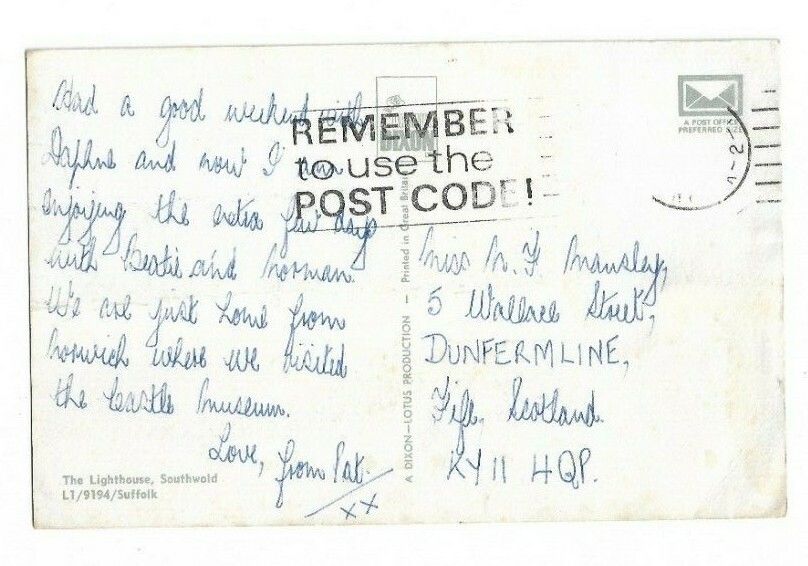 Had a good weekend with
Daphne and now I am
enjoying the extra few days
with Beatie and Norman.
We are just home from
Norwich where we visited
the Castle Museum.
Love, from Pat.
xx
The Lighthouse, Southwold
L1/9194/Suffolk
DIXON
REMEMBER
to use the
POST CODE!
A DIXON—LOTUS PRODUCTION — Printed in Great Britain
A POST OFFICE
PREFERRED SIZE
Miss M. F. Mansley,
5 Wallace Street,
DUNFERMLINE,
Fife, Scotland.
KY11 4QP.